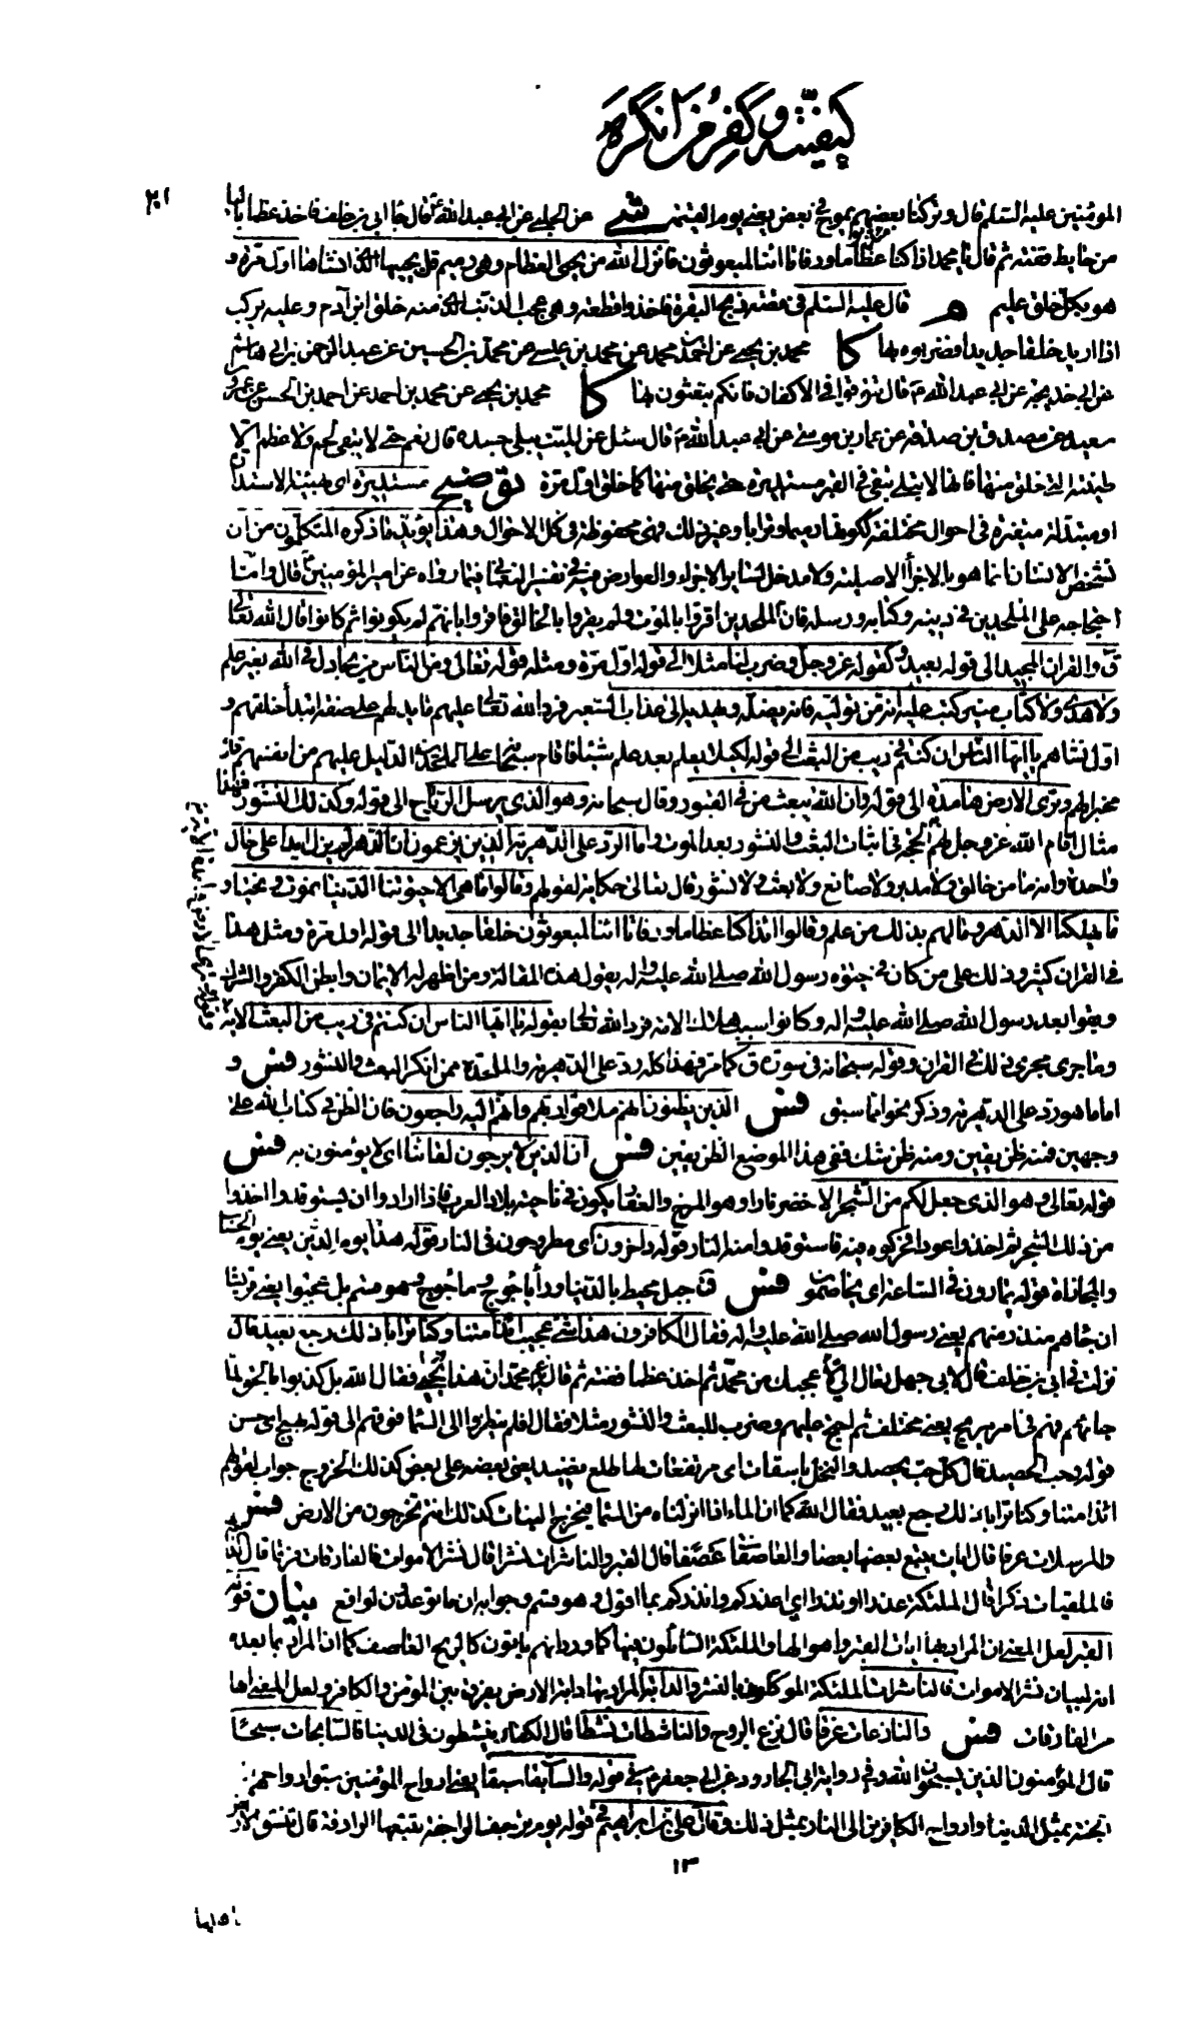 كيفيته وكفر من انكره
٢٠١
المؤمنين عليه السلام قال وتركنا بعضهم يموج في بعض يعني يوم القيمة شى عن الحلبي عن ابي عبد الله ع قال جاء ابي بن خلف فاخذ عظما باليا
من حايط ففته ثم قال يا محمد اذا كنا عظاما ورفاتا ائنا لمبعوثون فانزل الله من يحيى العظام وهي رميم قل يحييها الذي انشاها اول مرة و
هو بكل خلق عليم م قال عليه السلام في قصة ذبح البقرة فاخذوا قطعة وهي عجب الذنب الذي منه خلق ابن آدم وعليه يركب
اذا اريد خلقا جديدا فضربوه بها كا محمد بن يحيى عن احمد بن محمد عن محمد بن عيسى عن محمد بن الحسين عن عبد الرحمن بن ابي هاشم
عن ابي خديجة عن ابي عبد الله ع قال تنوقوا في الاكفان فانكم تبعثون بها كا محمد بن يحيى عن محمد بن احمد عن احمد بن الحسن عن عمرو بن
سعيد عن مصدق بن صدقة عن عمار بن موسى عن ابي عبد الله ع قال سئل عن الميت يبلى جسده قال نعم حتى لا يبقى لحم ولا عظم الا
طينته التي خلق منها فانها لا تبلى تبقى في القبر مستديرة حتى يخلق منها كما خلق اول مرة توضيح مستديرة اى بهيئة الاستدارة
او متبدلة متغيرة في احوال مختلفة ككونها رميما وترابا وغير ذلك فهي محفوظة في كل الاحوال وهذا يؤيد ما ذكره المتكلمون من ان
تشخص الانسان انما هو بالاجزاء الاصلية ولا مدخل لسائر الاجزاء والعوارض فيه في تفسير النعماني فيما رواه عن امير المؤمنين ع قال واما
احتجاجه على الملحدين في دينه وكتابه ورسله فان الملحدين اقروا بالموت ولم يقروا بالخالق فاقروا بانهم لم يكونوا ثم كانوا قال الله تعالى
ق والقران المجيد الى قوله بعيد وكقوله عز وجل وضرب لنا مثلا الى قوله اول مرة ومثله قوله تعالى ومن الناس من يجادل في الله بغير علم
ولا هدى ولا كتاب منير كتب عليه انه من تولاه فانه يضله ويهديه الى عذاب السعير فرد الله تعالى عليهم ما يدلهم على صفة ابتداء خلقهم و
اول نشاهم يا ايها الناس ان كنتم في ريب من البعث الى قوله لكيلا يعلم بعد علم شيئا فاقام سبحانه على الملحدين الدليل عليهم من انفسهم ثم قال
مخبرا لهم وترى الارض هامدة الى قوله وان الله يبعث من في القبور وقال سبحانه وهو الذي يرسل الرياح الى قوله وكذلك النشور فهذا
مثال اقام الله عز وجل لهم الحجة في اثبات البعث والنشور بعد الموت واما الرد على الدهرية الذين يزعمون ان الدهر لم يزل ابدا على حال
واحدة وانه ما من خالق ولا مدبر ولا صانع ولا بعث ولا نشور قال تعالى حكاية لقولهم وقالوا ما هي الا حيوتنا الدنيا نموت ونحيا و
ما يهلكنا الا الدهر وما لهم بذلك من علم وقالوا ائذا كنا عظاما ورفاتا ائنا لمبعوثون خلقا جديدا الى قوله اول مرة ومثل هذا
في القران كثير وذلك على من كان في حيوة رسول الله صلى الله عليه واله يقول هذه المقالة ومن اظهر له الايمان وابطن الكفر والشرك
وبقوا بعد رسول الله صلى الله عليه واله وكانوا سبب هلاك الامة فرد الله تعالى بقوله يا ايها الناس ان كنتم في ريب من البعث الاية
وما جرى مجرى ذلك في القران وقوله سبحانه في سورة ق كما مر فهذا كله رد على الدهرية والملحدة ممن انكر البعث والنشور فس و
اما ما هو رد على الدهرية وذكر نحوا مما سبق فس الذين يظنون انهم ملاقوا ربهم وانهم اليه راجعون فان الظن في كتاب الله على
وجهين فمنه ظن يقين ومنه ظن شك ففي هذا الموضع الظن يقين فس ان الذين لا يرجون لقاءنا اى لا يؤمنون به فس
قوله تعالى وهو الذي جعل لكم من الشجر الاخضر نارا وهو المرخ والعفار يكون في ناحية بلاد العرب فاذا ارادوا ان يستوقدوا اخذوا
من ذلك الشجر ثم اخذوا عودا فحركوه فيه فاستوقدوا منه النار قوله داخرون اى مطروحون في النار قوله هذا يوم الدين يعني يوم الحساب
والمجازاة قوله يمارون في الساعة اى يخاصمون فس ق جبل محيط بالدنيا وراء ياجوج وماجوج وهو قسم بل عجبوا يعني قريشا
ان جاءهم منذر منهم يعني رسول الله صلى الله عليه واله فقال الكافرون هذا شيء عجيب ائذا متنا وكنا ترابا ذلك رجع بعيد قال
نزلت في ابي بن خلف قال لابي جهل تعال الي لاعجبك من محمد ثم اخذ عظما ففته ثم قال يزعم محمد ان هذا يحيى فقال الله بل كذبوا بالحق لما
جاءهم فهم في امر مريج يعني مختلف ثم احتج عليهم وضرب للبعث والنشور مثلا فقال افلم ينظروا الى السماء فوقهم الى قوله بهيج اى حسن
قوله وحب الحصيد قال كل حب يحصد والنخل باسقات اى مرتفعات لها طلع نضيد يعني بعضه على بعض كذلك الخروج جواب لقولهم
ائذا متنا وكنا ترابا ذلك رجع بعيد فقال الله كما ان الماء اذا انزلناه من السماء فيخرج النبات كذلك انتم تخرجون من الارض فس
والمرسلات عرفا قال ايات يتبع بعضها بعضا والعاصفات عصفا قال القبر والناشرات نشرا قال نشر الاموات فالفارقات فرقا قال الدابة
فالملقيات ذكرا قال الملئكة عذرا او نذرا اى اعذركم وانذركم بما اقول وهو قسم وجوابه ان ما توعدون لواقع بيان قوله
القبر لعل المعنى ان المراد بها ايات القبر واهوالها والملئكة السائلون فيها كما ورد انهم ياتون كالريح العاصف كما ان المراد بما بعده
انه لبيان نشر الاموات فالناشرات الملئكة الموكلون بالنشر والدابة المراد بها دابة الارض يفرق بين المؤمن والكافر ولعل المعنى انها
من الفارقات فس والنازعات غرقا قال نزع الروح والناشطات نشطا قال الكفار ينشطون في الدنيا فالسابحات سبحا
قال المؤمنون الذين يسبحون الله وفي رواية ابي الجارود عن ابي جعفر ع في قوله والسابقات سبقا يعني ارواح المؤمنين سبق ارواحهم
الجنة بمثل الدنيا وارواح الكافرين الى النار بمثل ذلك وقال علي بن ابراهيم في قوله يوم ترجف الراجفة تتبعها الرادفة قال تنشق الارض
١٣
باهلها